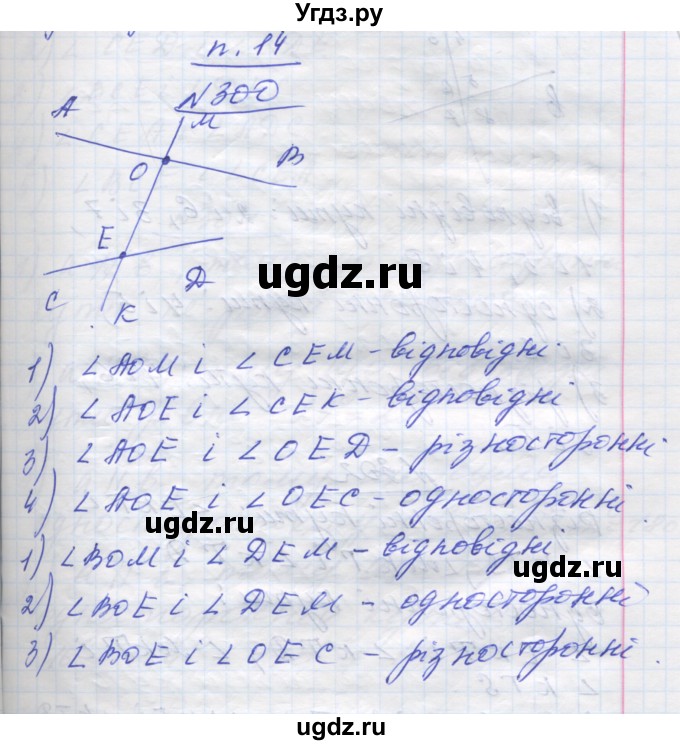 Угдз.ру
п. 14
N300
A
M
O
B
E
C
K
D
ugdz.ru
1) ∠AOM і ∠CEM - відповідні
2) ∠AOE і ∠CEK - відповідні
3) ∠AOE і ∠OED - різносторонні
4) ∠AOE і ∠OEC - односторонні.
ugdz.ru
1) ∠BOM і ∠DEM - відповідні
ugdz.ru
2) ∠BOE і ∠DEM - односторонні
3) ∠BOE і ∠OEC - різносторонні.
ugdz.ru